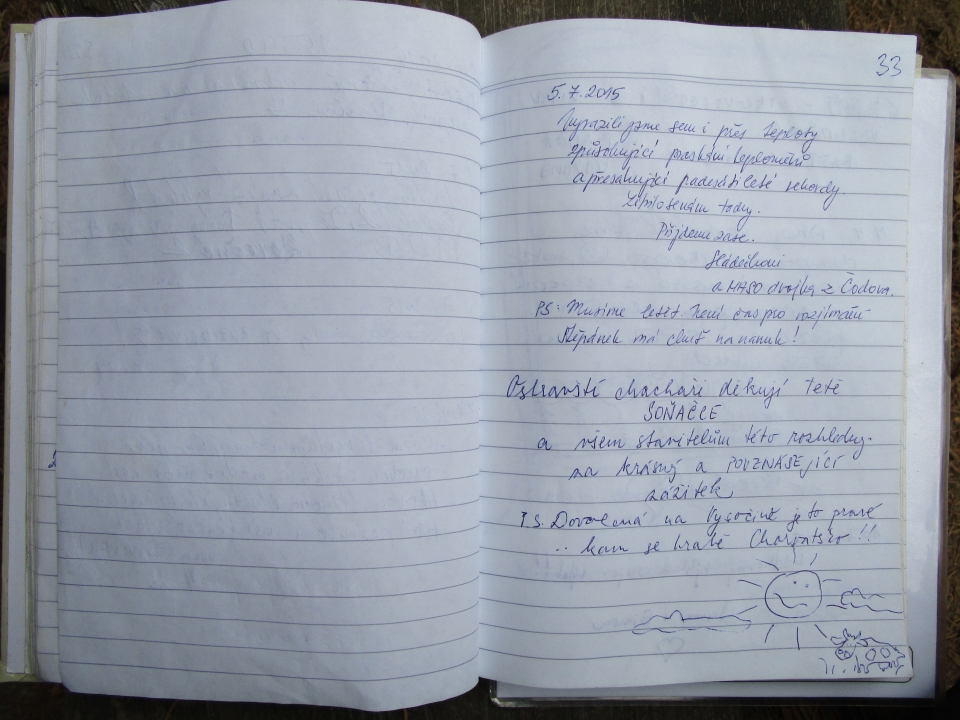 33
5.7.2015
Vyrazili jsme sem i přes teploty
způsobující praskání teploměrů
a přesahující padesátileté rekordy.
Líbilo se nám tady.
Přijdeme zase.
Sládečkovi
a MASO dvojka z Čodova.
PS: Musíme letět není čas pro rozjímání
Štěpánek má chuť na nanuk!
Ostravští chachaři děkují tetě
SOŇAČCE
a všem stavitelům této rozhledny.
za krásný a POVZNÁŠEJÍCÍ
zážitek
P.S. Dovolená na Vysočině je to pravé
.. kam se hrabe Chorvatsko!!